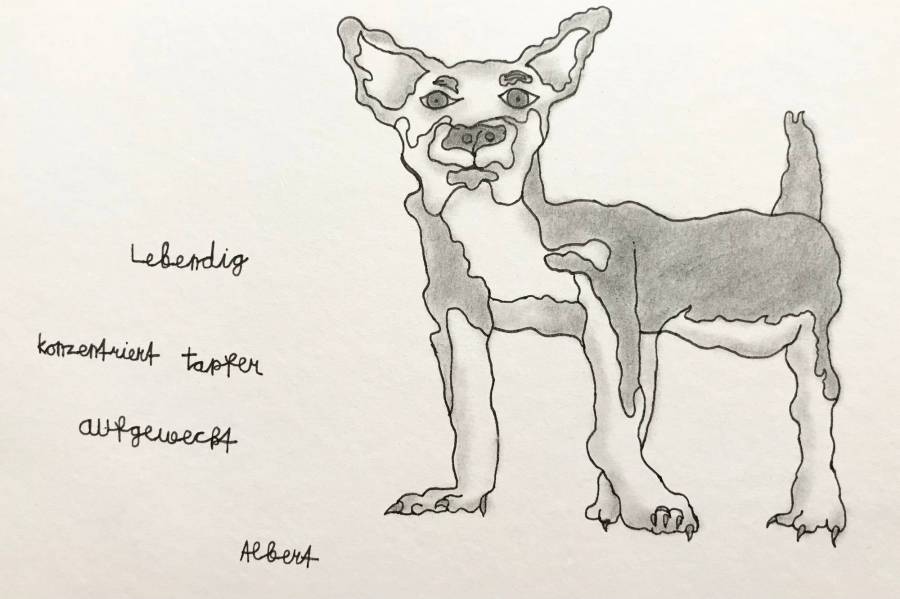 Lebendig
konzentriert tapfer
aufgeweckt
Albert